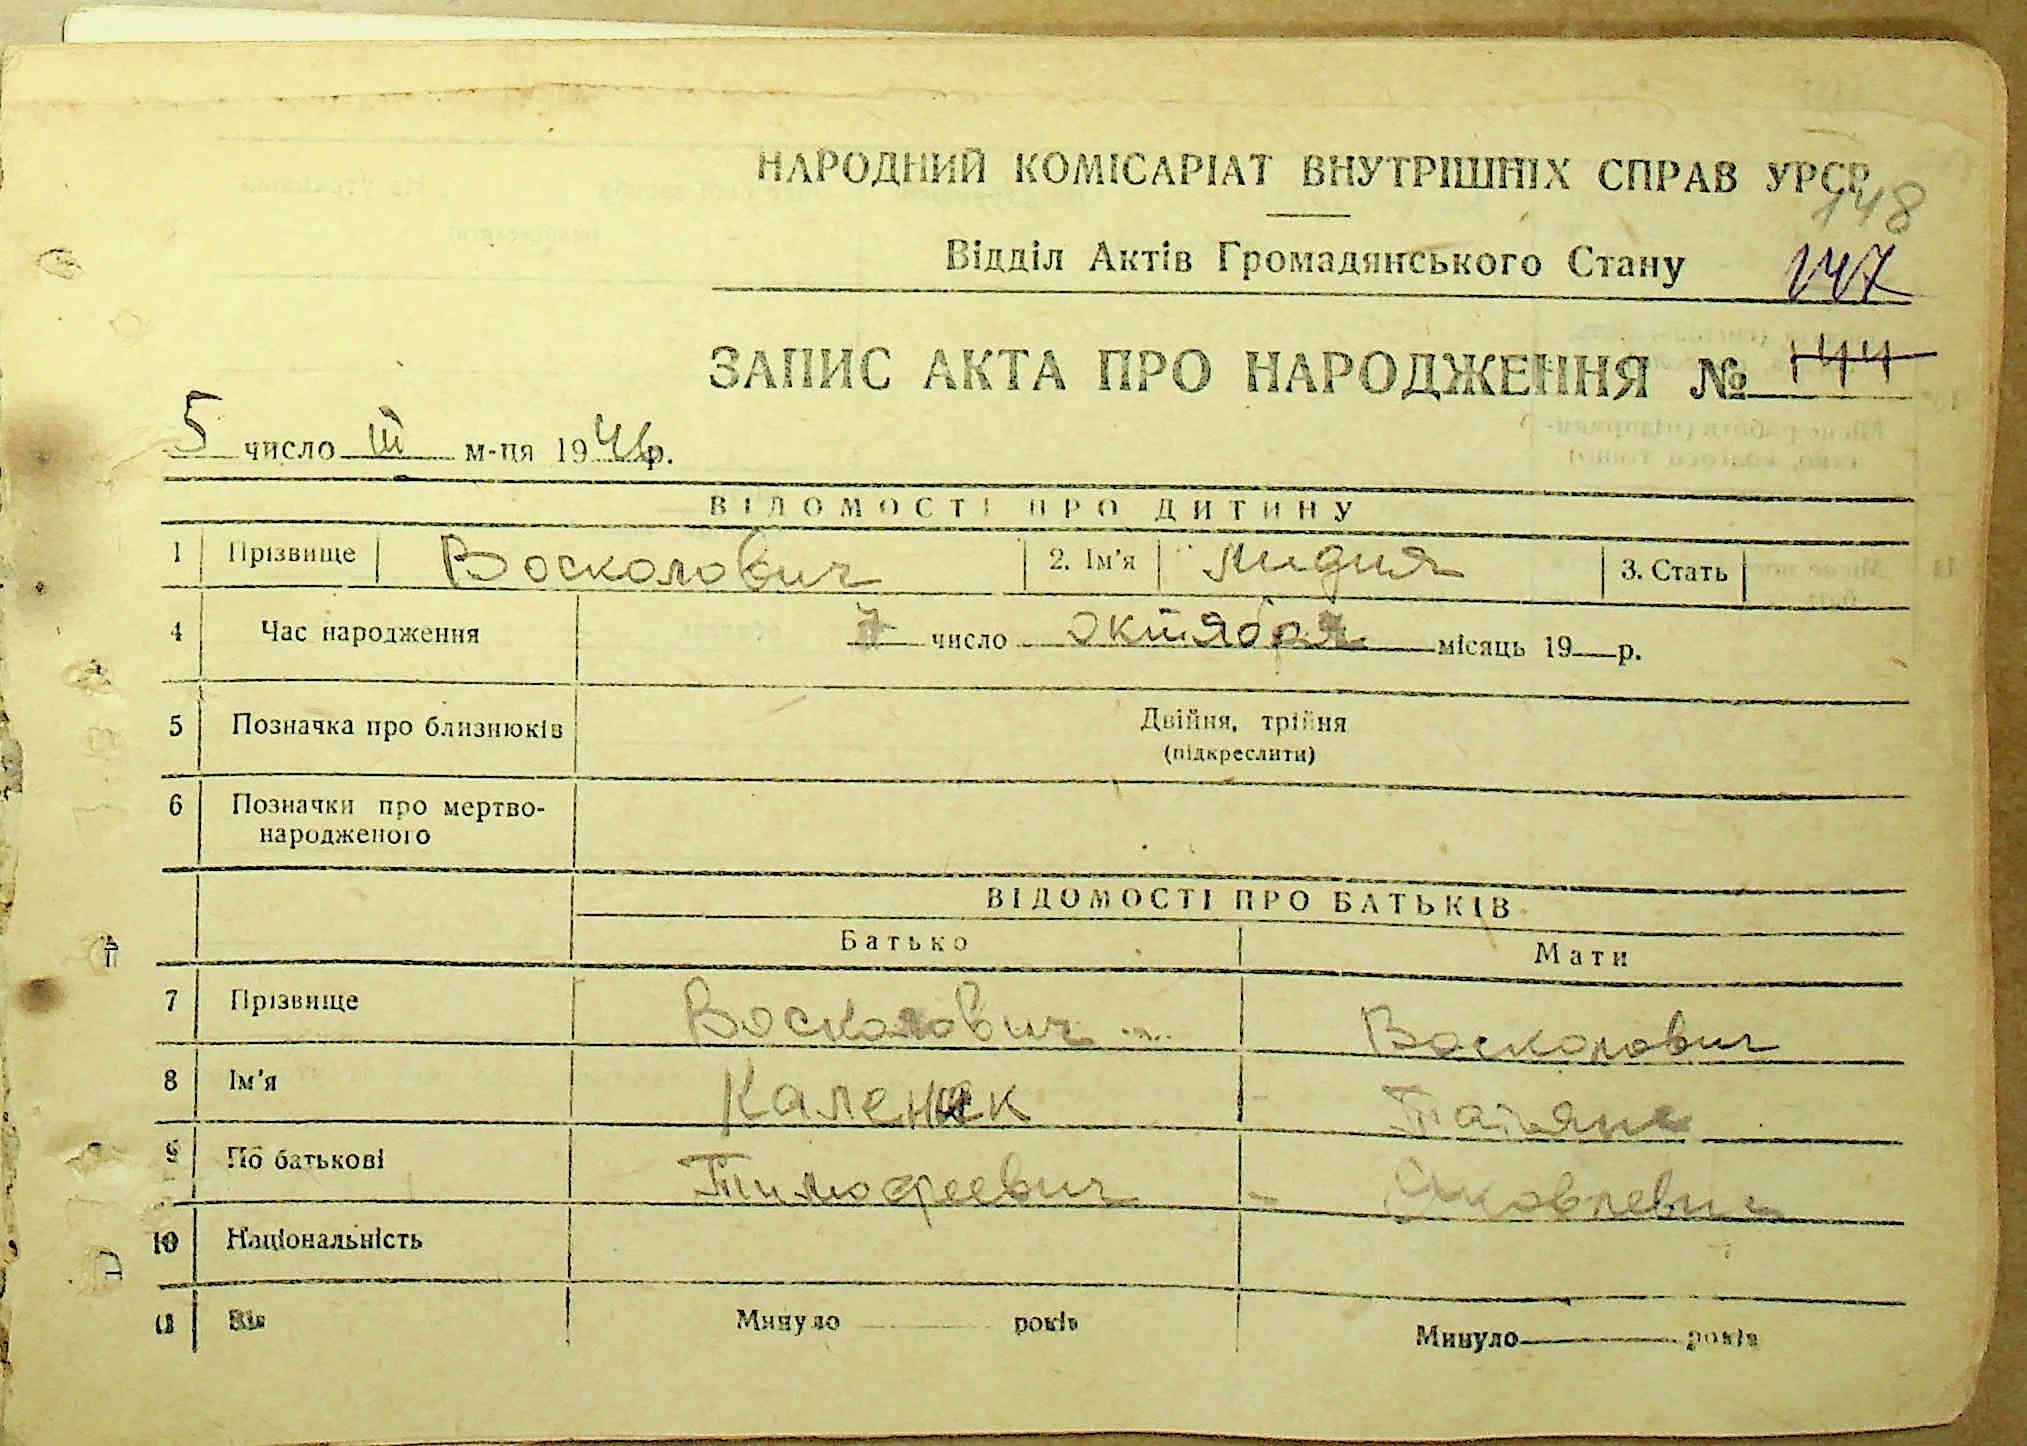 НАРОДНИЙ КОМІСАРІАТ ВНУТРІШНІХ СПРАВ УРСР
148
Відділ Актів Громадянського Стану
147
ЗАПИС АКТА ПРО НАРОДЖЕННЯ № 144
5 число III м-ця 19 р.
ВІДОМОСТІ ПРО ДИТИНУ
1 Прізвище Восколович 2. Ім'я Лидия 3. Стать
4 Час народження 7 число октября місяць 19 р.
5 Позначка про близнюків Двійня, трійня
(підкреслити)
6 Позначки про мертво-
народженого
ВІДОМОСТІ ПРО БАТЬКІВ
Батько Мати
7 Прізвище Восколович Восколович
8 Ім'я Каленик Татьяна
9 По батькові Тимофеевич
10 Національність
11 Вік Минуло років Минуло років